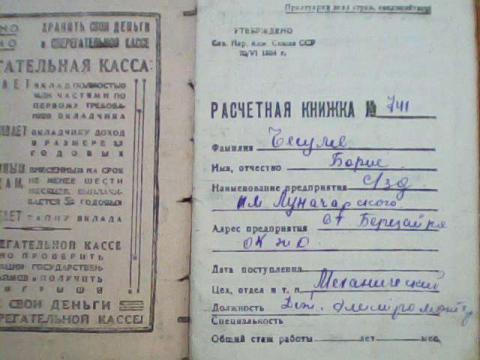 НО ХРАНИТЬ СВОИ ДЕНЬГИ
НО В СБЕРЕГАТЕЛЬНОЙ КАССЕ
ГАТЕЛЬНАЯ КАССА:
АЕТ ВКЛАД ПОЛНОСТЬЮ
ИЛИ ЧАСТЯМИ ПО
ПЕРВОМУ ТРЕБОВА
НИЮ ВКЛАДЧИКА
ИВАЕТ ВКЛАДЧИКУ ДОХОД
В РАЗМЕРЕ
ГОДОВЫХ
ВНЕСЕННЫМ НА СРОК
АМ, НЕ МЕНЕЕ ШЕСТИ
МЕСЯЦЕВ,
ГОДОВЫХ
АЕТ ТАЙНУ ВКЛАДА
РЕГАТЕЛЬНОЙ КАССЕ
НО ПРОВЕРИТЬ
АЦИИ ГОСУДАРСТВЕН
АЙМОВ И ПОЛУЧИТЬ
ИГРЫШИ
СВОИ ДЕНЬГИ
ЕРЕГАТЕЛЬНОЙ КАССЕ!
УТВЕРЖДЕНО
Нар. Ком. Союза ССР
1934 г.
РАСЧЕТНАЯ КНИЖКА № 741
Фамилия
Имя, отчество Борис
Наименование предприятия С/зд
им Луначарского
Адрес предприятия ст Березайка
ОК ЖД
Дата поступления
Цех, отдел и т. п. Механический
Должность
Специальность
Общий стаж работы лет мес.